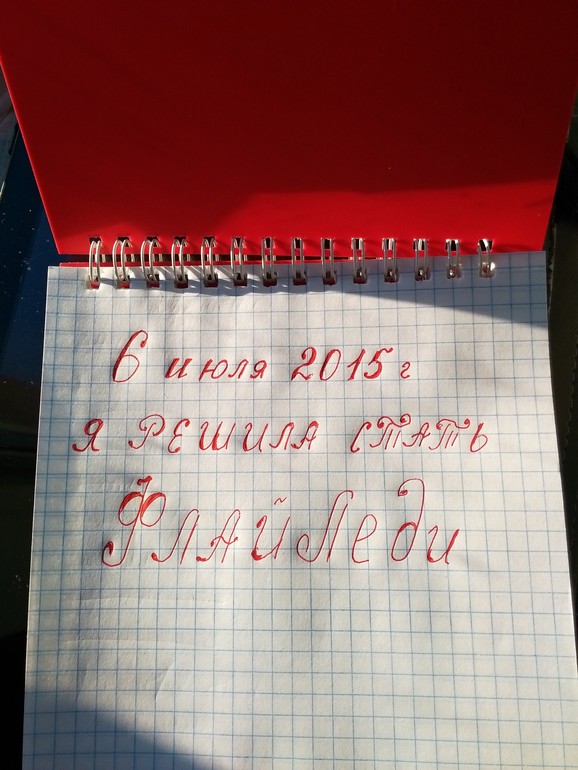 6 июля 2015 г
Я РЕШИЛА СТАТЬ
ФЛАЙЛеди